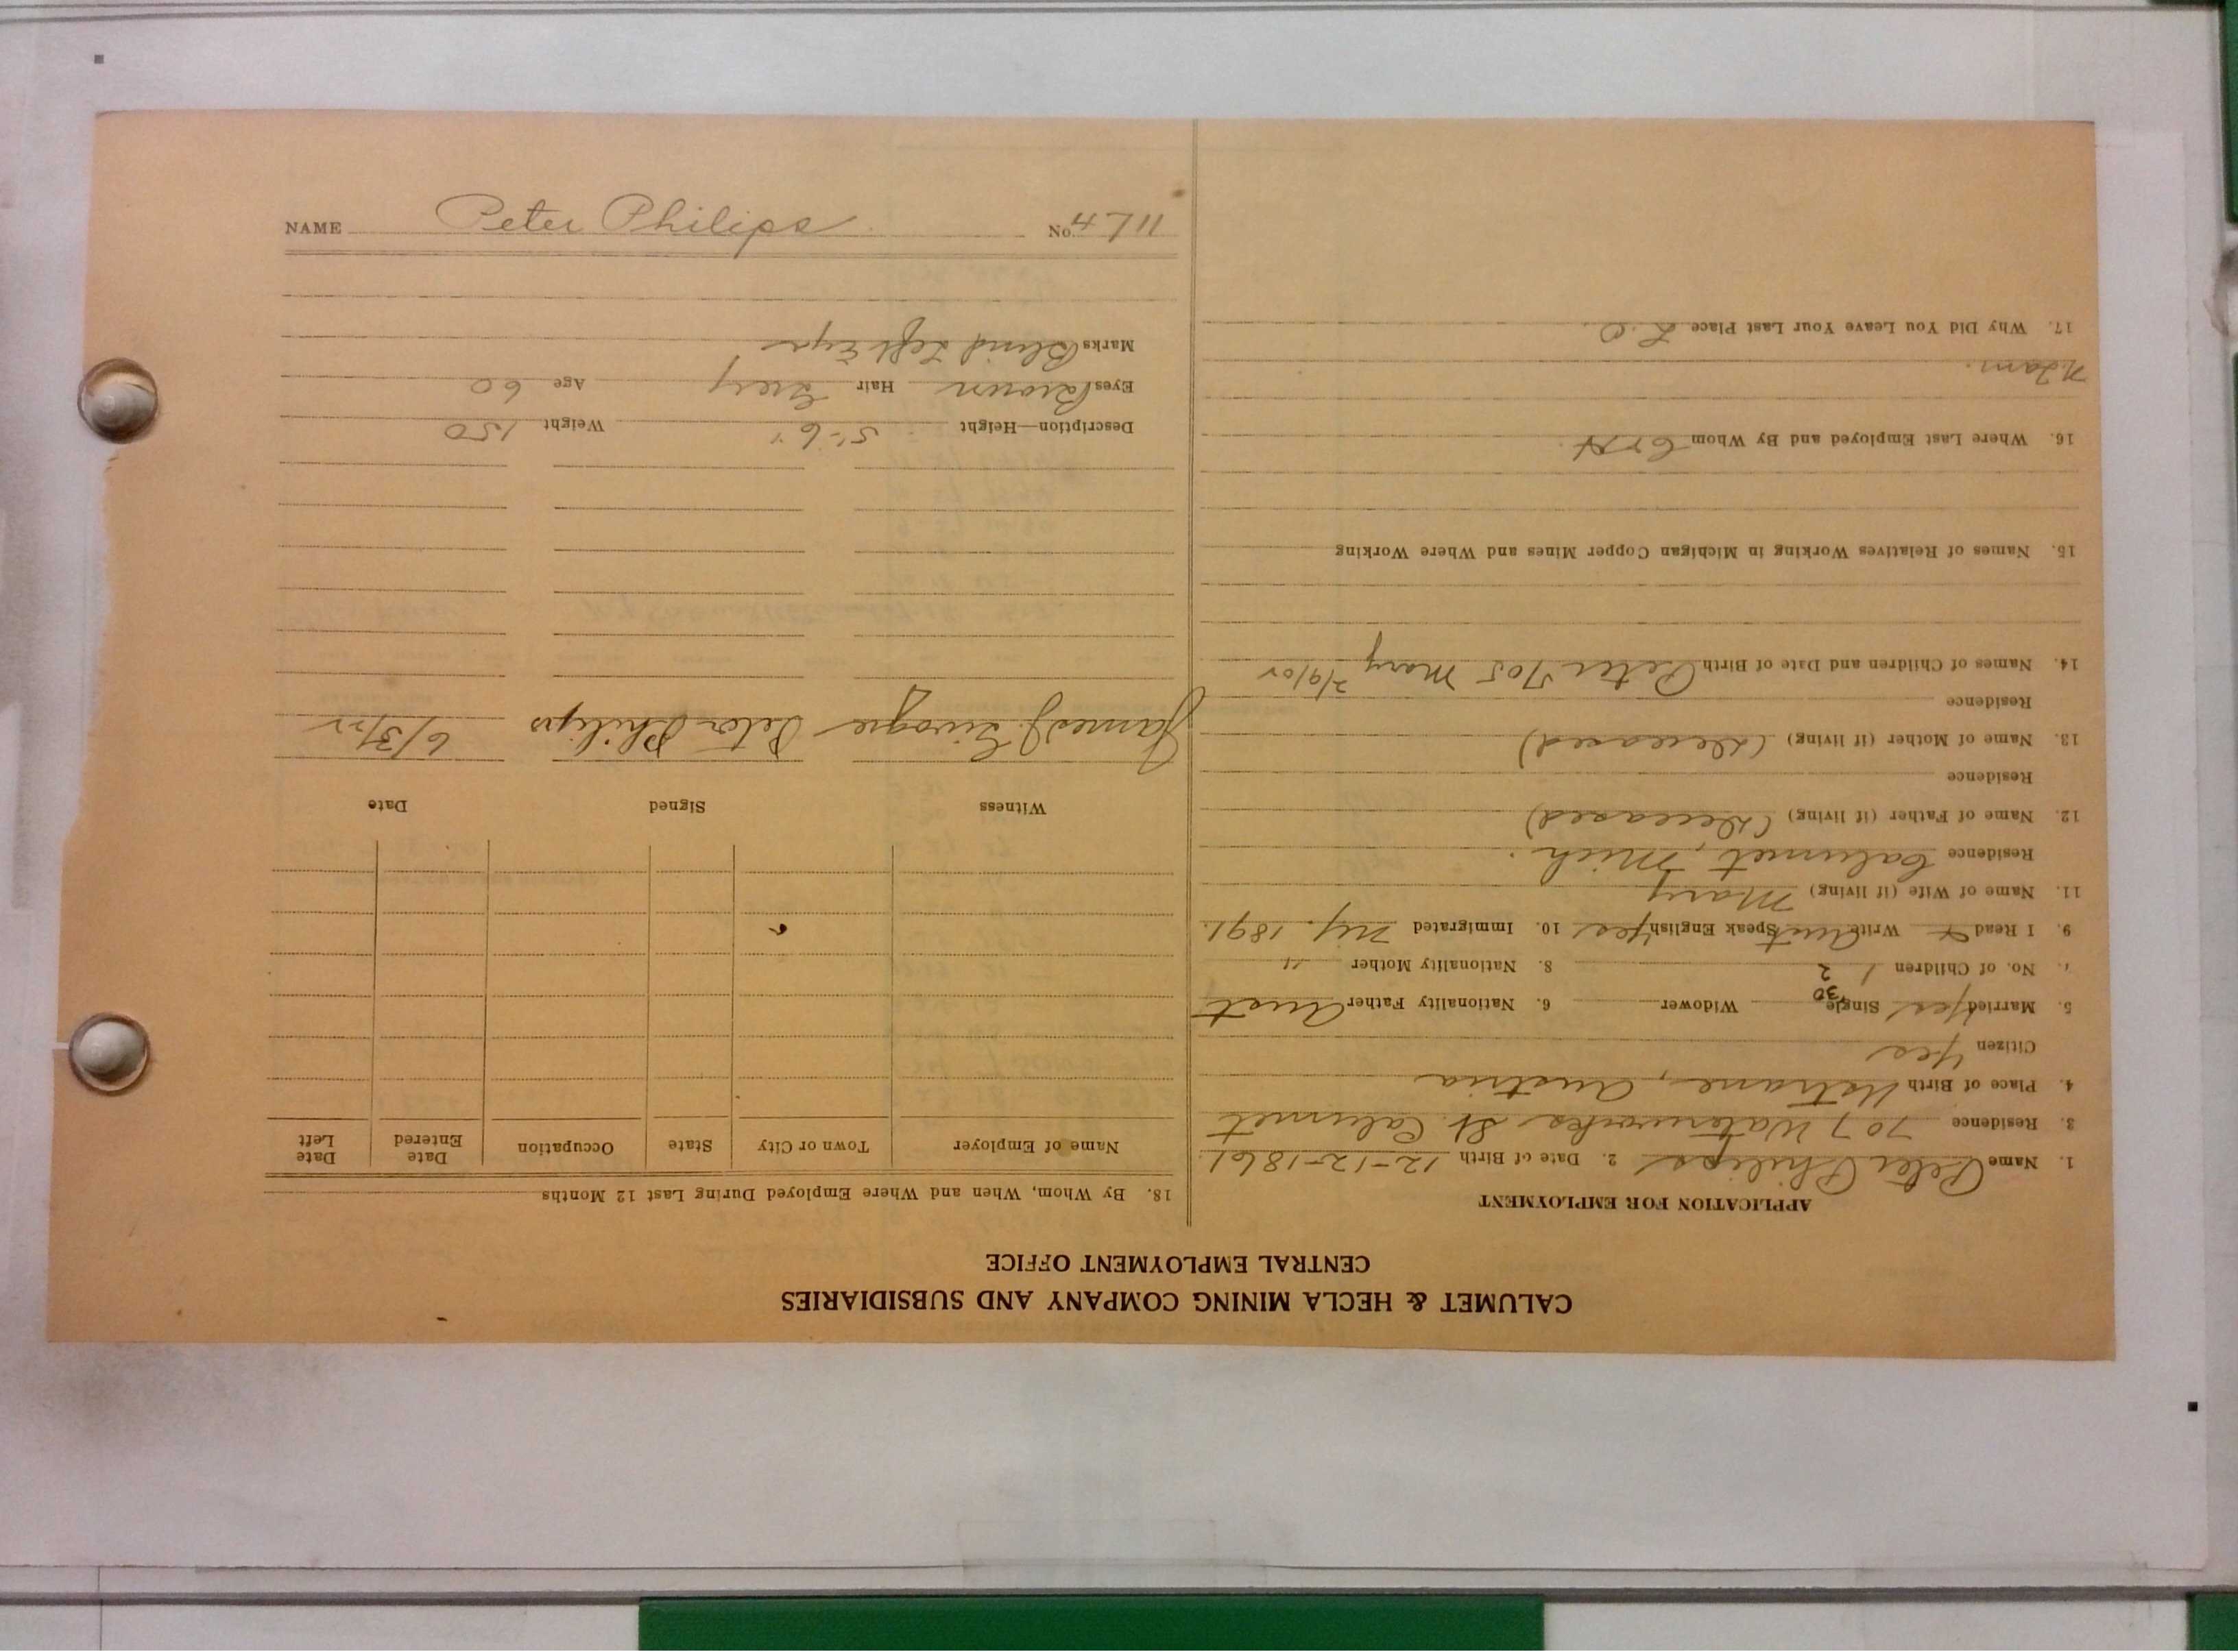 CALUMET & HECLA MINING COMPANY AND SUBSIDIARIES
CENTRAL EMPLOYMENT OFFICE
APPLICATION FOR EMPLOYMENT
1. Name Peter Philips 2. Date of Birth 12-12-1861
3. Residence 707 Waterworks St. Calumet
4. Place of Birth Austria
Citizen Yes
5. Married Yes 30 Single Widower 6. Nationality Father Aust
7. No. of Children 1 2 8. Nationality Mother "
9. I Read Write Aust Speak English Yes 10. Immigrated 1891
11. Name of Wife (if living) Mary
Residence Calumet, Mich.
12. Name of Father (if living) (Deceased)
Residence
13. Name of Mother (if living) (Deceased)
Residence
14. Names of Children and Date of Birth Peter Mary
15. Names of Relatives Working in Michigan Copper Mines and Where Working
16. Where Last Employed and By Whom C & H
17. Why Did You Leave Your Last Place L.O.
18. By Whom, When and Where Employed During Last 12 Months
Name of Employer Town or City State Occupation Date Entered Date Left
Witness Signed Date
James J. Peter Philips 6/3/22
Description—Height 5'-6" Weight 150
Eyes Brown Hair Grey Age 60
Marks Blind Left Eye
NAME Peter Philips No. 4711